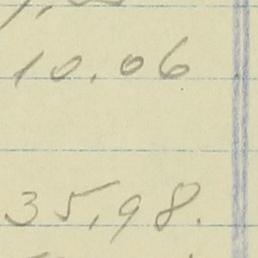 10.06
35,98.